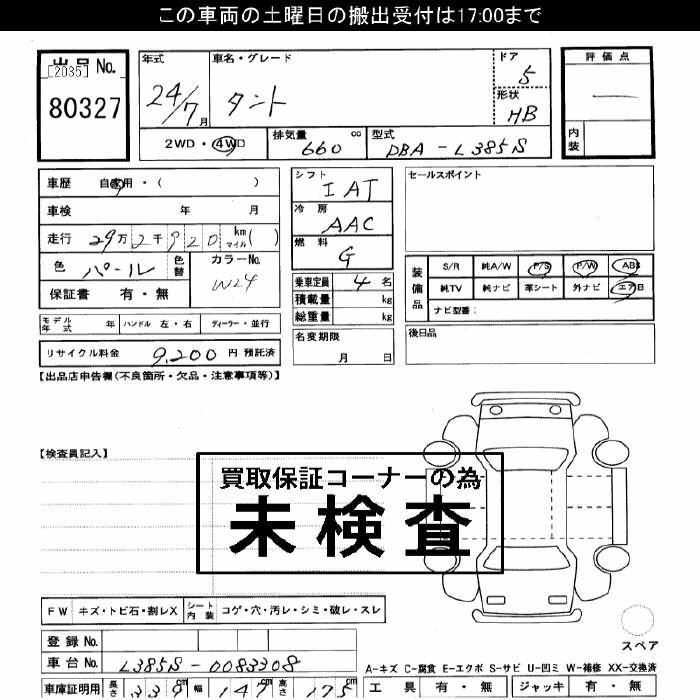 この車両の土曜日の搬出受付は17:00まで
出品 No.
[2035]
80327
年式
24/7月
車名・グレード
タント
ドア
5
形状
HB
2WD・4WD
排気量
660 cc
型式
DBA-L385S
評価点
—
内装
車歴 自家用・( )
車検 年 月
走行 29万2千920 km マイル( )
色 パール 色替
カラーNo.
W24
保証書 有・無
モデル年式 年 ハンドル 左・右 ディーラー・並行
リサイクル料金 9,200 円 預託済
シフト
IAT
冷房
AAC
燃料
G
乗車定員 4 名
積載量 kg
総重量 kg
名変期限
月 日
セールスポイント
装備品
S/R 純A/W P/S P/W ABS
純TV 純ナビ 革シート 外ナビ エアB
ナビ型番:
後日品
【出品店申告欄(不良箇所・欠品・注意事項等)】
【検査員記入】
買取保証コーナーの為
未検査
FW キズ・トビ石・割レX シート内装 コゲ・穴・汚レ・シミ・破レ・スレ
スペア
登録No.
車台No. L385S-0083308
A-キズ C-腐食 E-エクボ S-サビ U-凹ミ W-補修 XX-交換済
車庫証明用 長さ 339cm 幅 147cm 高さ 175cm
工具 有・無 ジャッキ 有・無